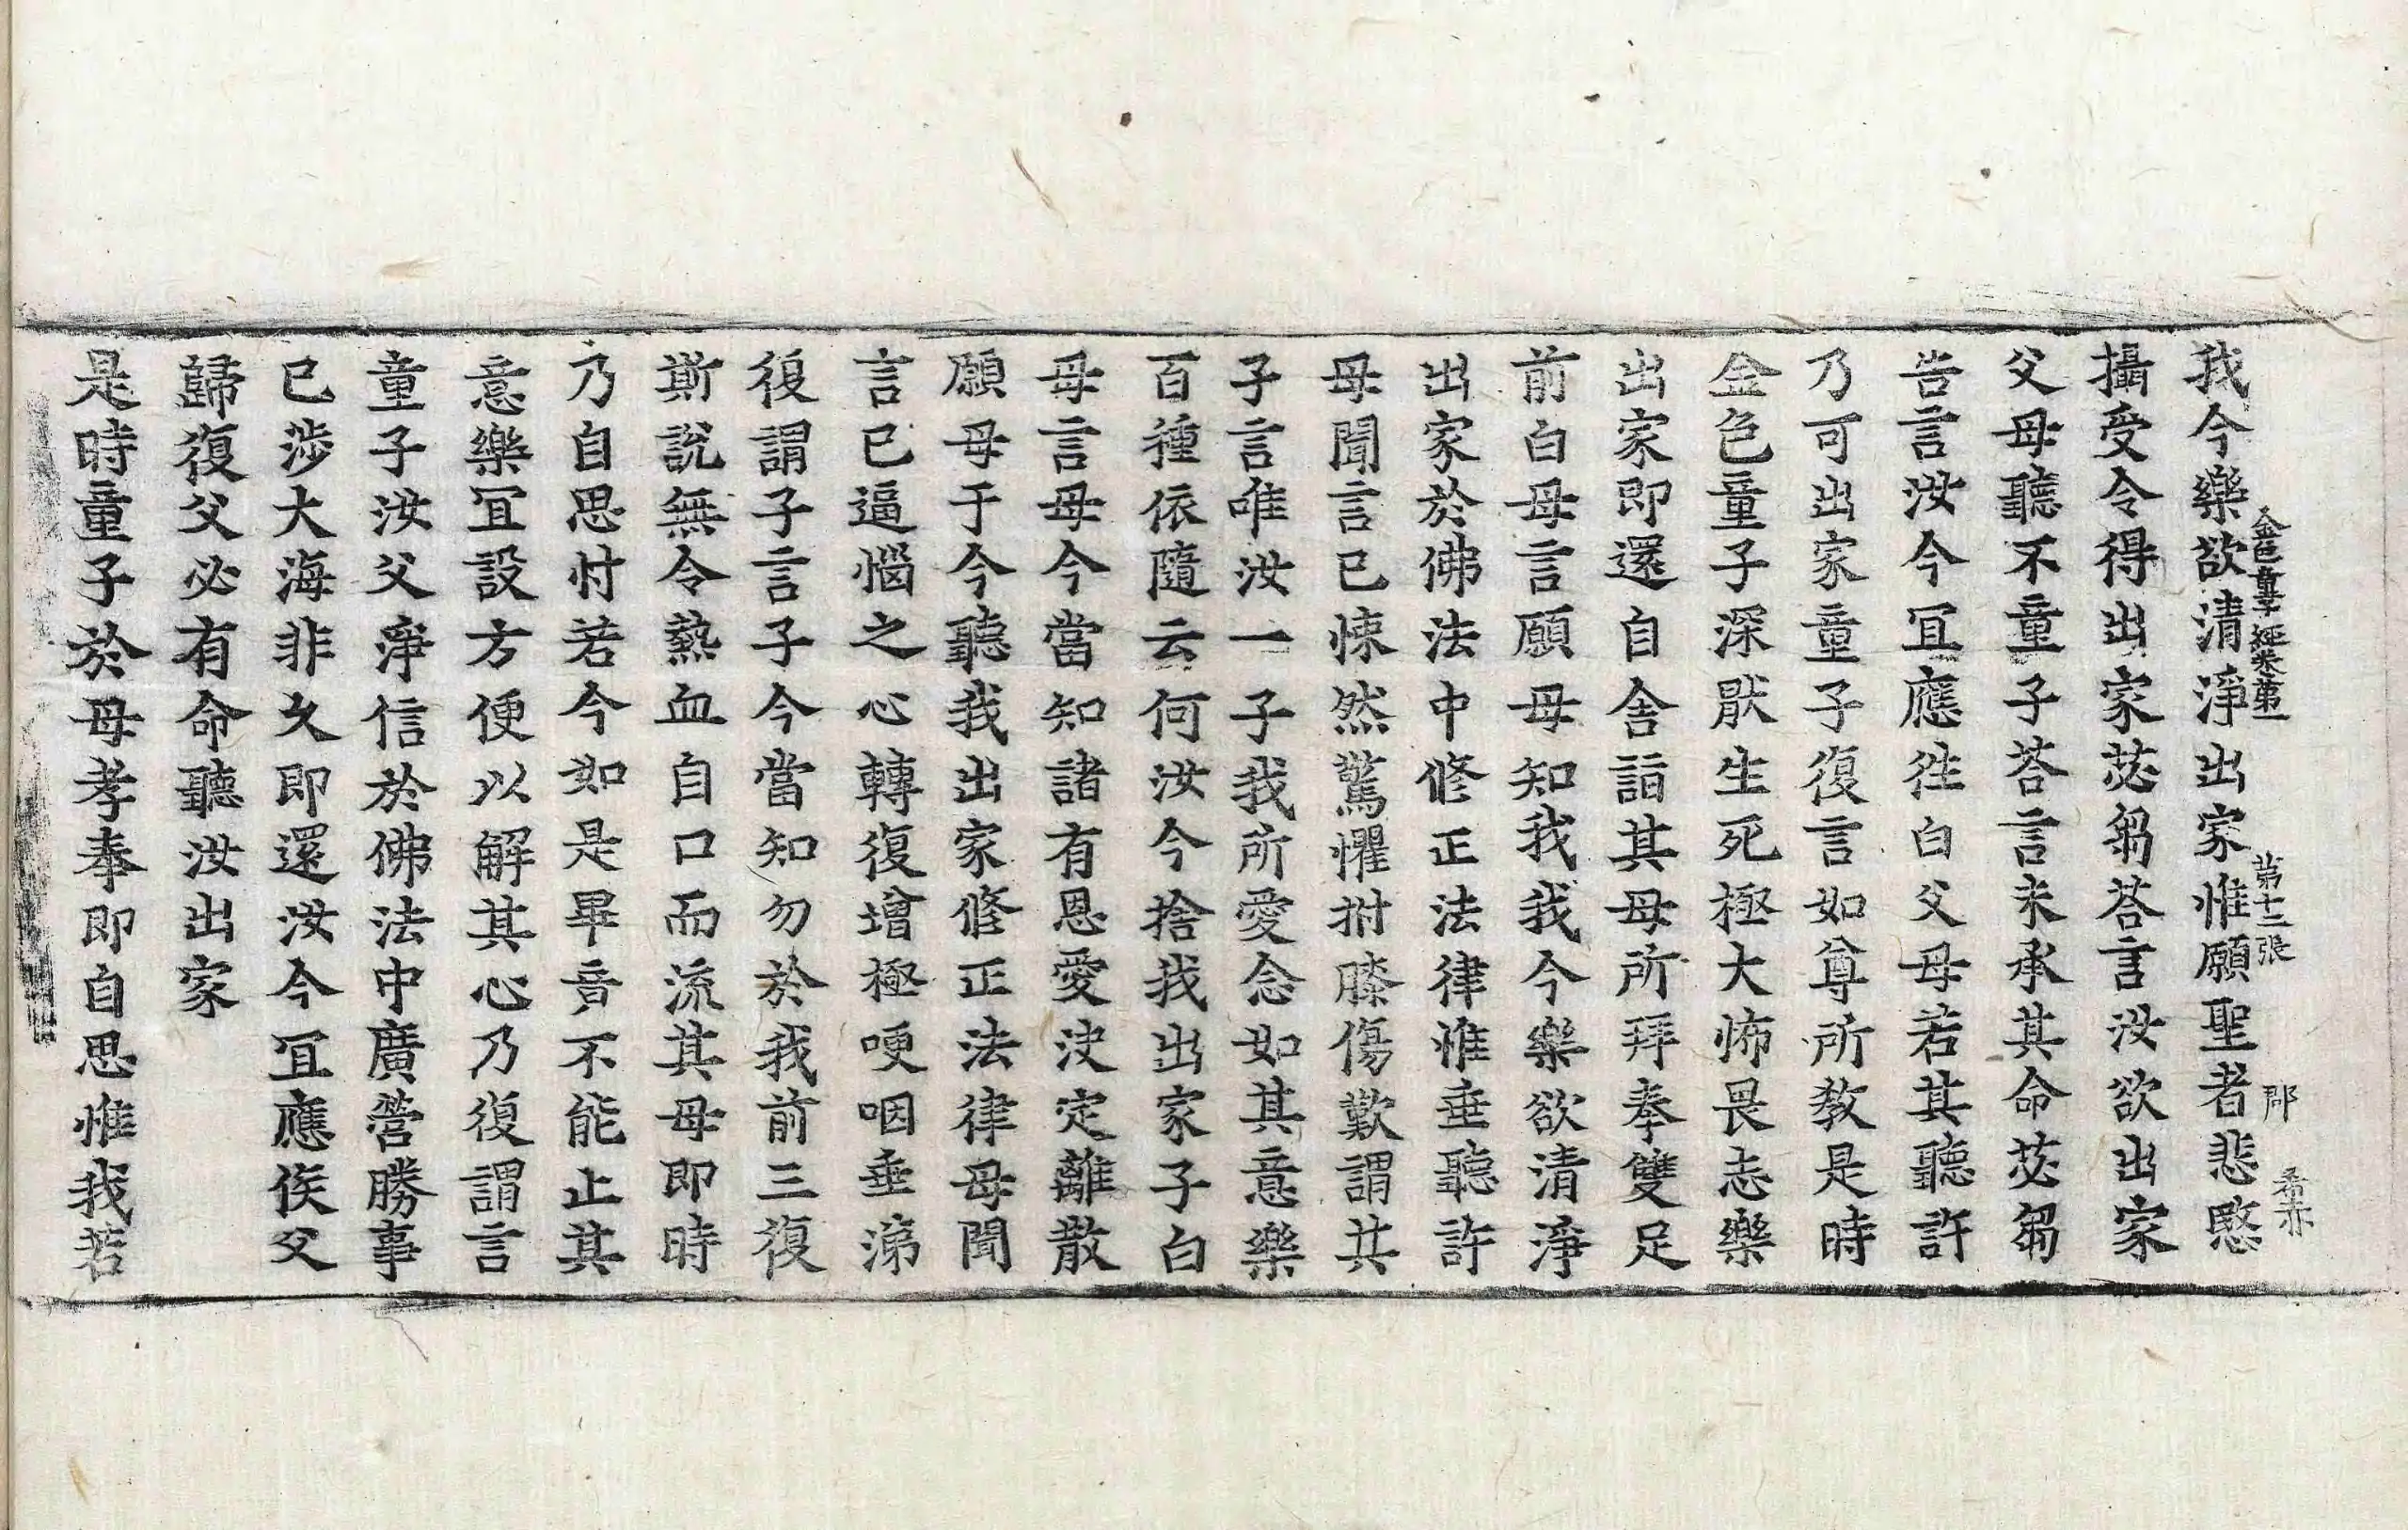 金色童子經卷第一　第十二張　郡　希亦
我今樂欲清淨出家惟願聖者悲愍
攝受令得出家苾芻荅言汝欲出家
父母聽不童子荅言未承其命苾芻
告言汝今冝應徃白父母若其聽許
乃可出家童子復言如尊所教是時
金色童子深猒生死極大怖畏志樂
出家即還自舍詣其母所拜奉雙足
前白母言願母知我我今樂欲清淨
出家於佛法中修正法律惟垂聽許
母聞言已悚然驚懼拊膝傷歎謂其
子言唯汝一子我所愛念如其意樂
百種依隨云何汝今捨我出家子白
母言母今當知諸有恩愛决定離散
願母于今聽我出家修正法律母聞
言已逼惱之心轉復增極哽咽垂涕
復謂子言子今當知勿於我前三復
斯說無令熱血自口而流其母即時
乃自思忖若今如是畢竟不能止其
意樂冝設方便以解其心乃復謂言
童子汝父淨信於佛法中廣營勝事
已涉大海非久即還汝今冝應俟父
歸復父必有命聽汝出家
是時童子於母孝奉即自思惟我若